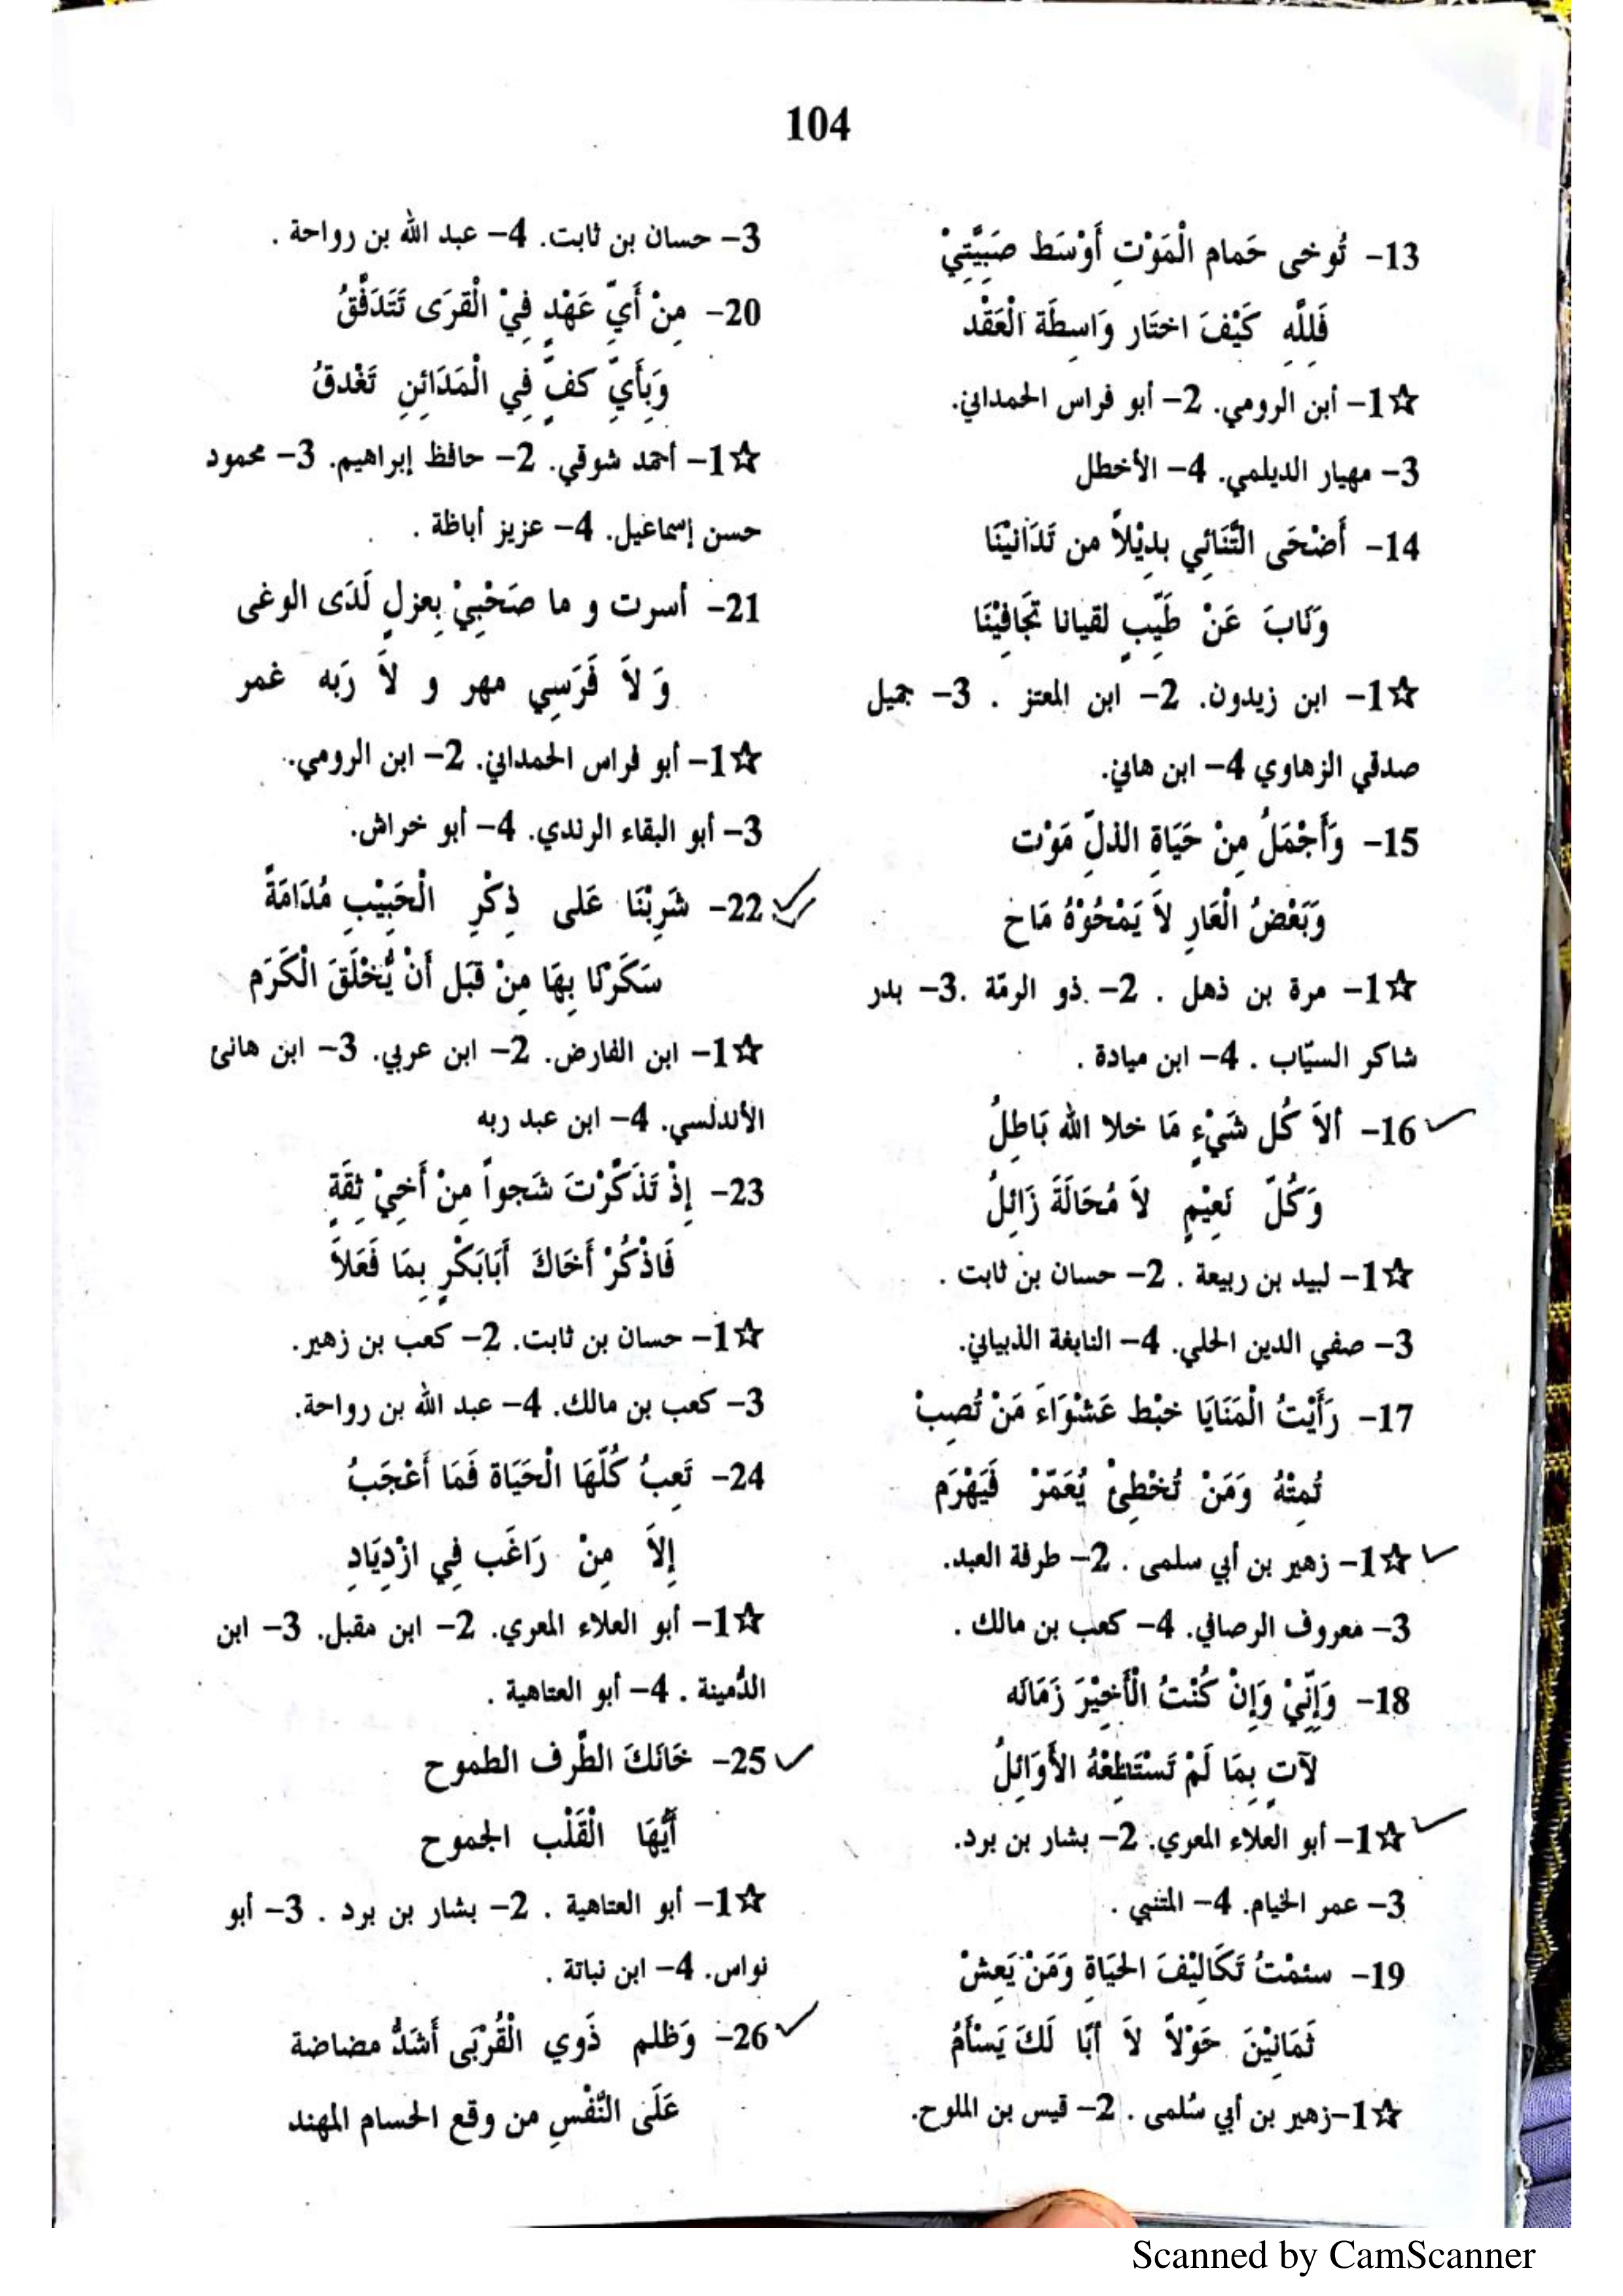 104
13- تُوخى حَمام الْمَوْتِ أَوْسَط صَبِيَّتِيْ
فَلِلَّهِ كَيْفَ اختَار وَاسِطَة الْعَقْد
☆1- أبن الرومي. 2- أبو فراس الحمداني.
3- مهيار الديلمي. 4- الأخطل
14- أَضْحَى التَّنَائِي بدِيْلاً من تَدَانيْنَا
وَنَابَ عَنْ طَيِّبِ لقيانا تجَافِيْنَا
☆1- ابن زيدون. 2- ابن المعتز . 3- جميل
صدقي الزهاوي 4- ابن هانئ.
15- وَأَجْمَلُ مِنْ حَيَاةِ الذلِّ مَوْت
وَبَعْضُ الْعَارِ لاَ يَمْحُوْهُ مَاح
☆1- مرة بن ذهل . 2- ذو الرمّة .3- بدر
شاكر السيّاب . 4- ابن ميادة .
16- ألاَ كُل شَيْءٍ مَا خلا الله بَاطِلُ
وَكُلّ نَعِيْمٍ لاَ مُحَالَةَ زَائِلُ
☆1- لبيد بن ربيعة . 2- حسان بن ثابت .
3- صفي الدين الحلي. 4- النابغة الذبياني.
17- رَأَيْتُ الْمَنَايَا خبْط عَشْوَاءَ مَنْ تُصِبْ
تُمِتْهُ وَمَنْ تُخْطِئْ يُعَمّرْ فَيَهْرَم
☆1- زهير بن أبي سلمى . 2- طرفة العبد.
3- معروف الرصافي. 4- كعب بن مالك .
18- وَإِنِّيْ وَإِنْ كُنْتُ الْأَخِيْرَ زَمَانَه
لآتِ بِمَا لَمْ تَسْتَطِعْهُ الأَوَائِلُ
☆1- أبو العلاء المعري. 2- بشار بن برد.
3- عمر الخيام. 4- المتنبي .
19- سئمْتُ تَكَالِيْفَ الحيَاةِ وَمَنْ يَعِشْ
ثَمَانِيْنَ حَوْلاً لاَ أبَا لَكَ يَسْأَمُ
☆1-زهير بن أبي سُلمى . 2- قيس بن الملوح.
3- حسان بن ثابت. 4- عبد الله بن رواحة .
20- مِنْ أَيِّ عَهْدٍ فِيْ الْقرَى تَتَدَفَّقُ
وَبِأَيِّ كفٍّ فِي الْمَدَائِنِ تَغْدقُ
☆1- أحمد شوقي. 2- حافظ إبراهيم. 3- محمود
حسن إسماعيل. 4- عزيز أباظة .
21- أسرت و ما صَحْبِيْ بِعزلٍ لَدَى الوغى
وَ لاَ فَرَسِي مهر و لاَ رَبه غمر
☆1- أبو فراس الحمداني. 2- ابن الرومي.
3- أبو البقاء الرندي. 4- أبو خراش.
22- شَرِبْنَا عَلى ذِكْرِ الْحَبِيْبِ مُدَامَةً
سَكَرْنَا بِهَا مِنْ قَبَل أَنْ يُّخْلَقَ الْكَرَم
☆1- ابن الفارض. 2- ابن عربي. 3- ابن هانئ
الأندلسي. 4- ابن عبد ربه
23- إِذْ تَذَكَّرْتَ شَجواً مِنْ أَخِيْ ثِقَةٍ
فَاذْكُرْ أَخَاكَ أَبَابَكْرٍ بِمَا فَعَلاَ
☆1- حسان بن ثابت. 2- كعب بن زهير.
3- كعب بن مالك. 4- عبد الله بن رواحة.
24- تَعِبُ كُلّهَا الْحَيَاة فَمَا أَعْجَبُ
إِلاَ مِنْ رَاغَب فِي ازْدِيَادِ
☆1- أبو العلاء المعري. 2- ابن مقبل. 3- ابن
الدُّمينة . 4- أبو العتاهية .
25- خَانَكَ الطَّرف الطموح
أَيُّهَا الْقَلْب الجموح
☆1- أبو العتاهية . 2- بشار بن برد . 3- أبو
نواس. 4- ابن نباتة .
26- وَظلم ذَوي الْقُرْبَى أَشَدُّ مضاضة
عَلَى النَّفْسِ من وقع الحسام المهند
Scanned by CamScanner